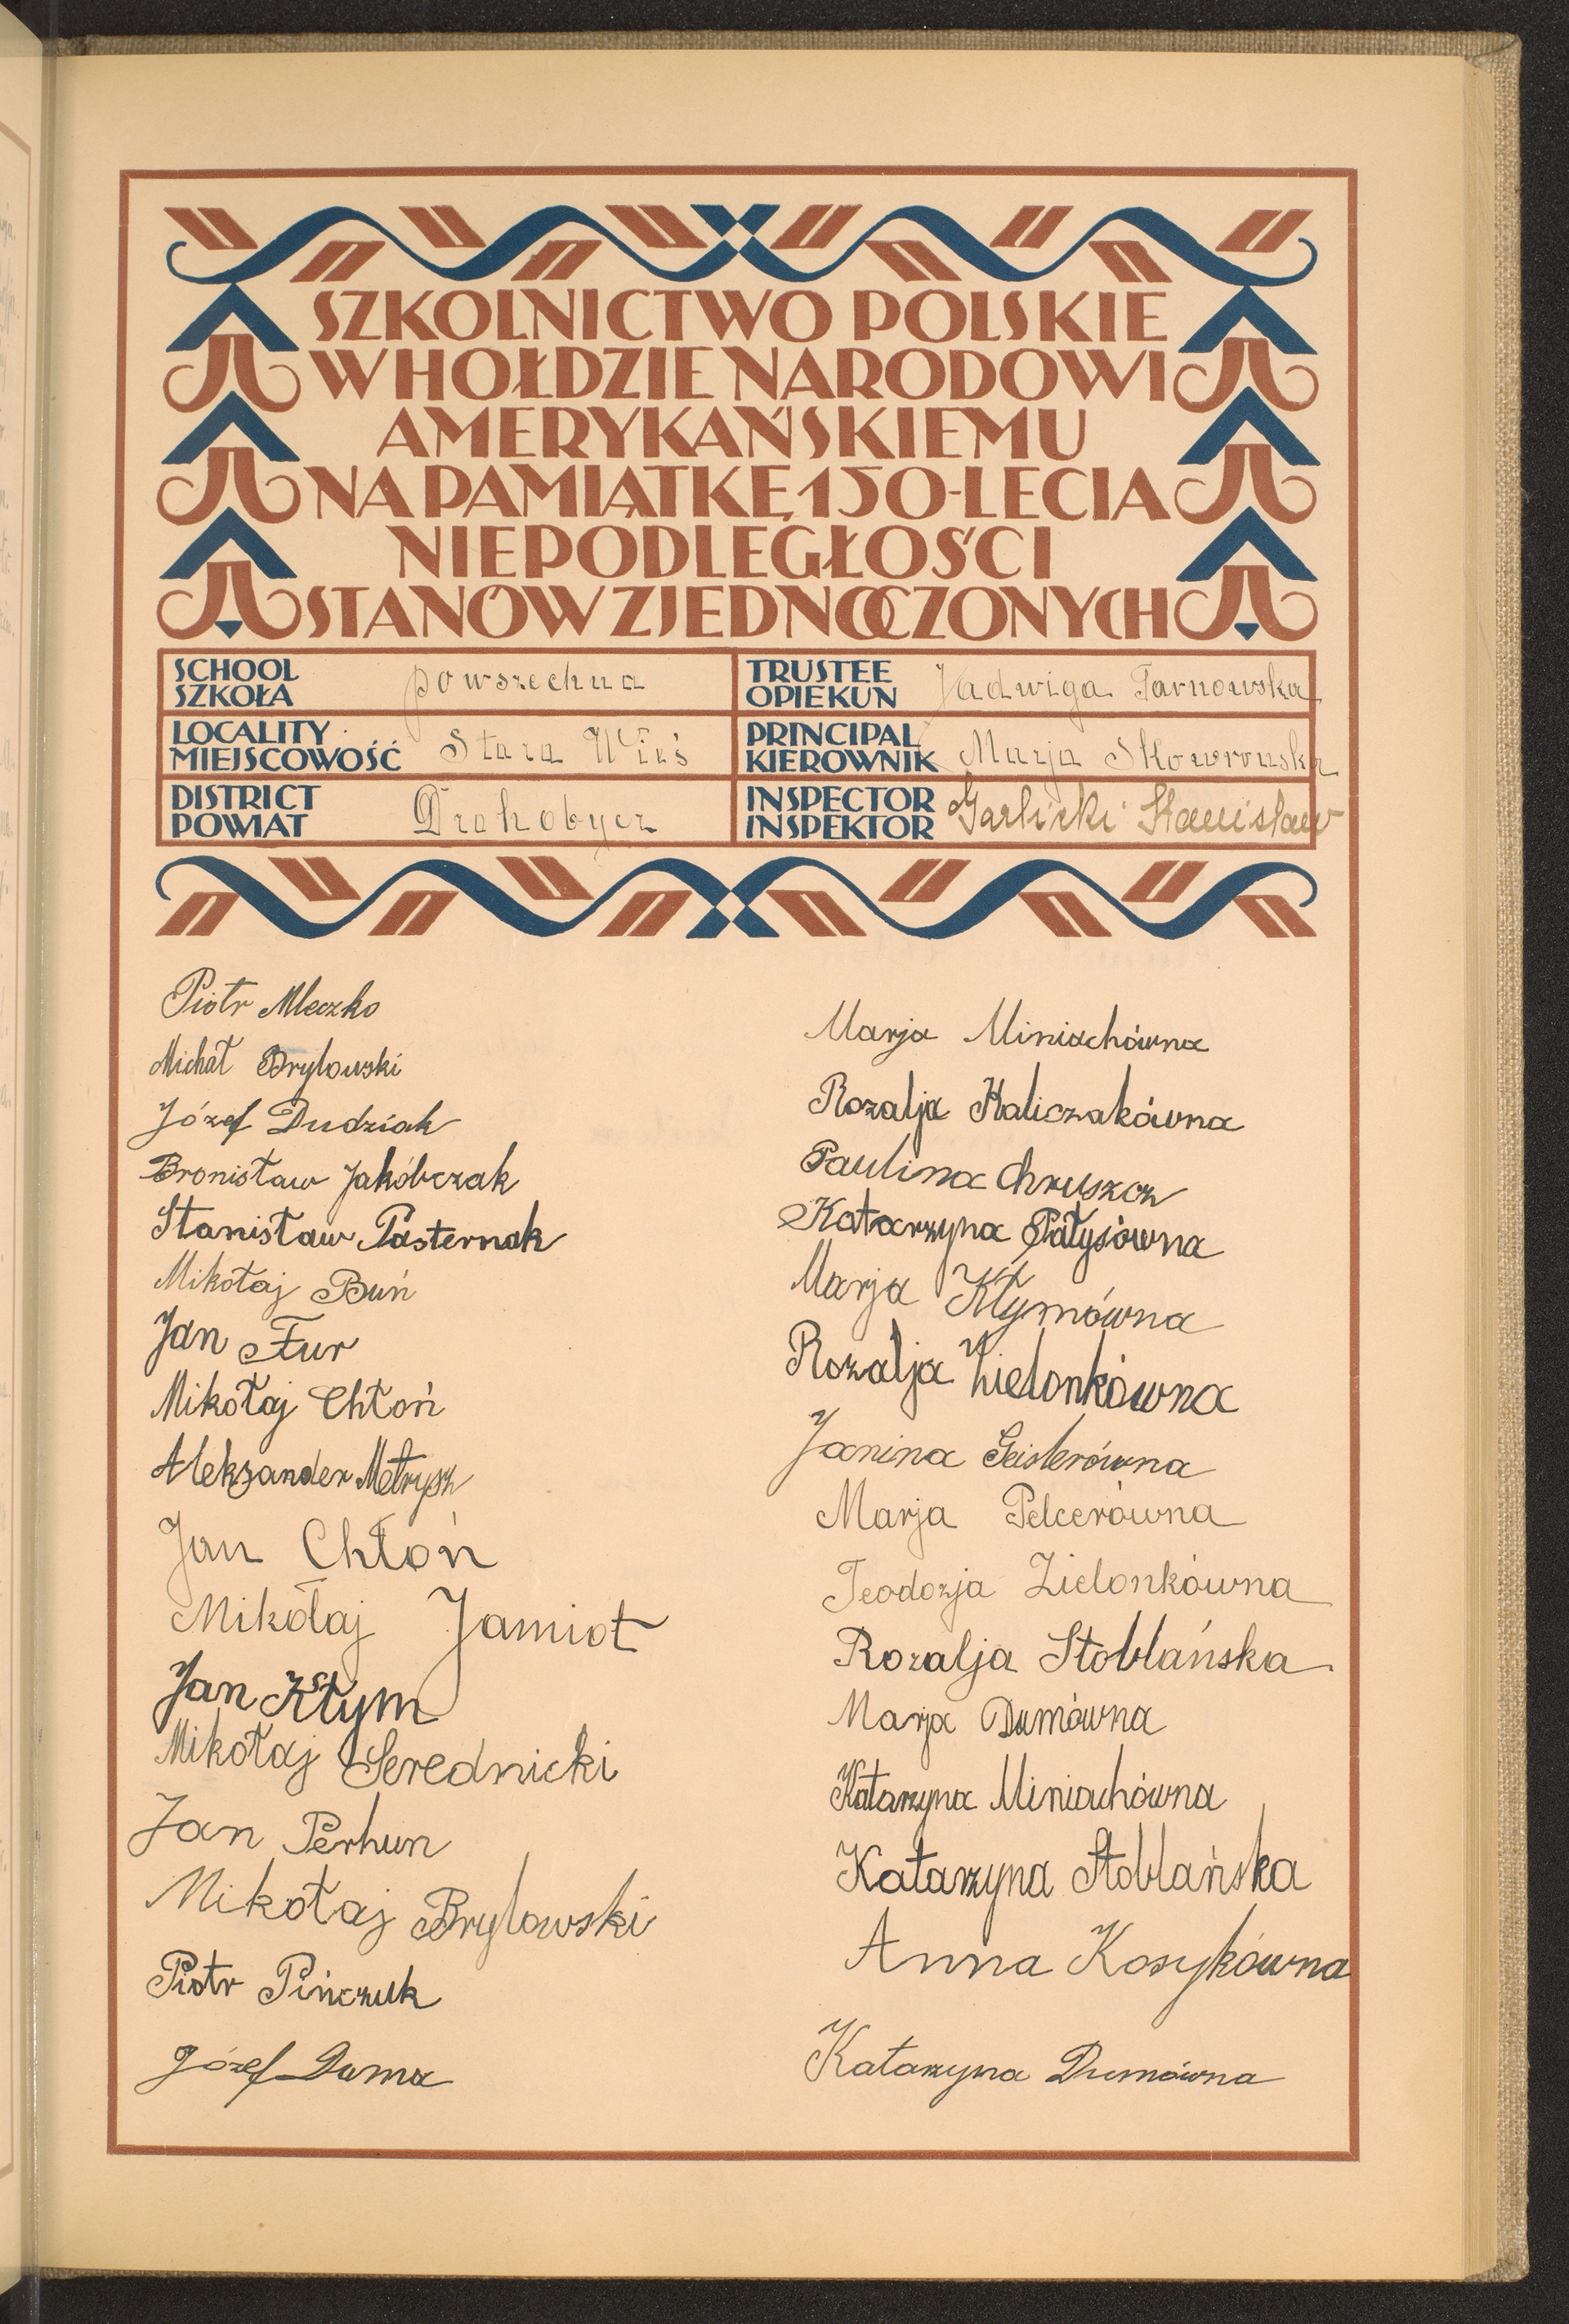 SZKOLNICTWO POLSKIE
W HOŁDZIE NARODOWI
AMERYKAŃSKIEMU
NA PAMIĄTKĘ 150-LECIA
NIEPODLEGŁOŚCI
STANÓW ZJEDNOCZONYCH
SCHOOL
SZKOŁA
powszechna
TRUSTEE
OPIEKUN
Jadwiga Tarnowska
LOCALITY
MIEJSCOWOŚĆ
Stara Wieś
PRINCIPAL
KIEROWNIK
Marja Skowrońska
DISTRICT
POWIAT
Drohobycz
INSPECTOR
INSPEKTOR
Garlicki Stanisław
Piotr Mleczko
Michał Brylowski
Józef Dudziak
Bronisław Jakóbczak
Stanisław Pasternak
Mikołaj Buń
Jan Fur
Mikołaj Chłoń
Aleksander Metrysz
Jan Chłoń
Mikołaj Jamiot
Jan Kłym
Mikołaj Serednicki
Jan Perhun
Mikołaj Brylowski
Piotr Pińczuk
Józef Duma
Marja Miniachówna
Rozalja Haliczakówna
Paulina Chruszcz
Katarzyna Patysówna
Marja Kłymówna
Rozalja Zielonkówna
Janina Geislerówna
Marja Pelcerówna
Teodozja Zielonkówna
Rozalja Stoblańska
Marja Dumówna
Katarzyna Miniachówna
Katarzyna Stoblańska
Anna Kosykówna
Katarzyna Dumówna